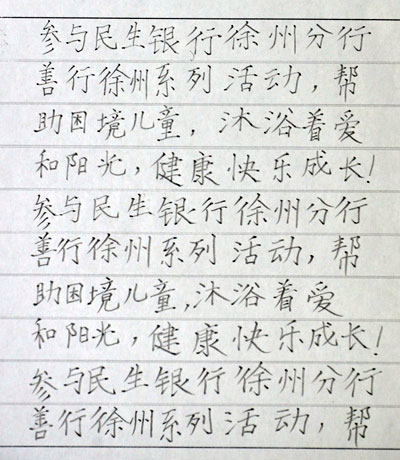 参与民生银行徐州分行
善行徐州系列活动，帮
助困境儿童，沐浴着爱
和阳光，健康快乐成长！
参与民生银行徐州分行
善行徐州系列活动，帮
助困境儿童，沐浴着爱
和阳光，健康快乐成长！
参与民生银行徐州分行
善行徐州系列活动，帮